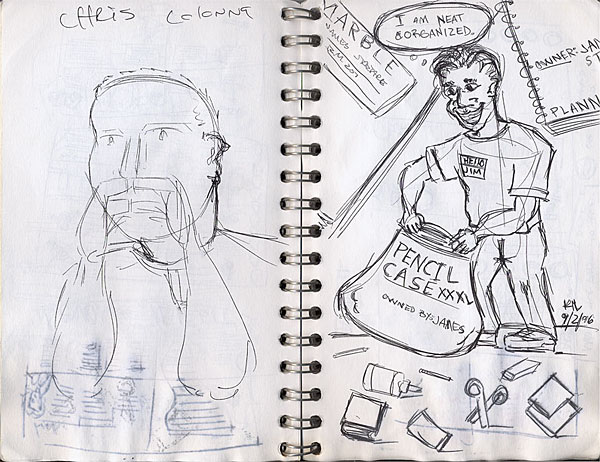 CHRIS Colonna
MARBLE
I AM NEAT
&ORGANIZED.
OWNER: JAM
ST
PLANN
HELLO
JIM
PENCIL
CASE XXXL
OWNED BY: JAMES
9/2/96